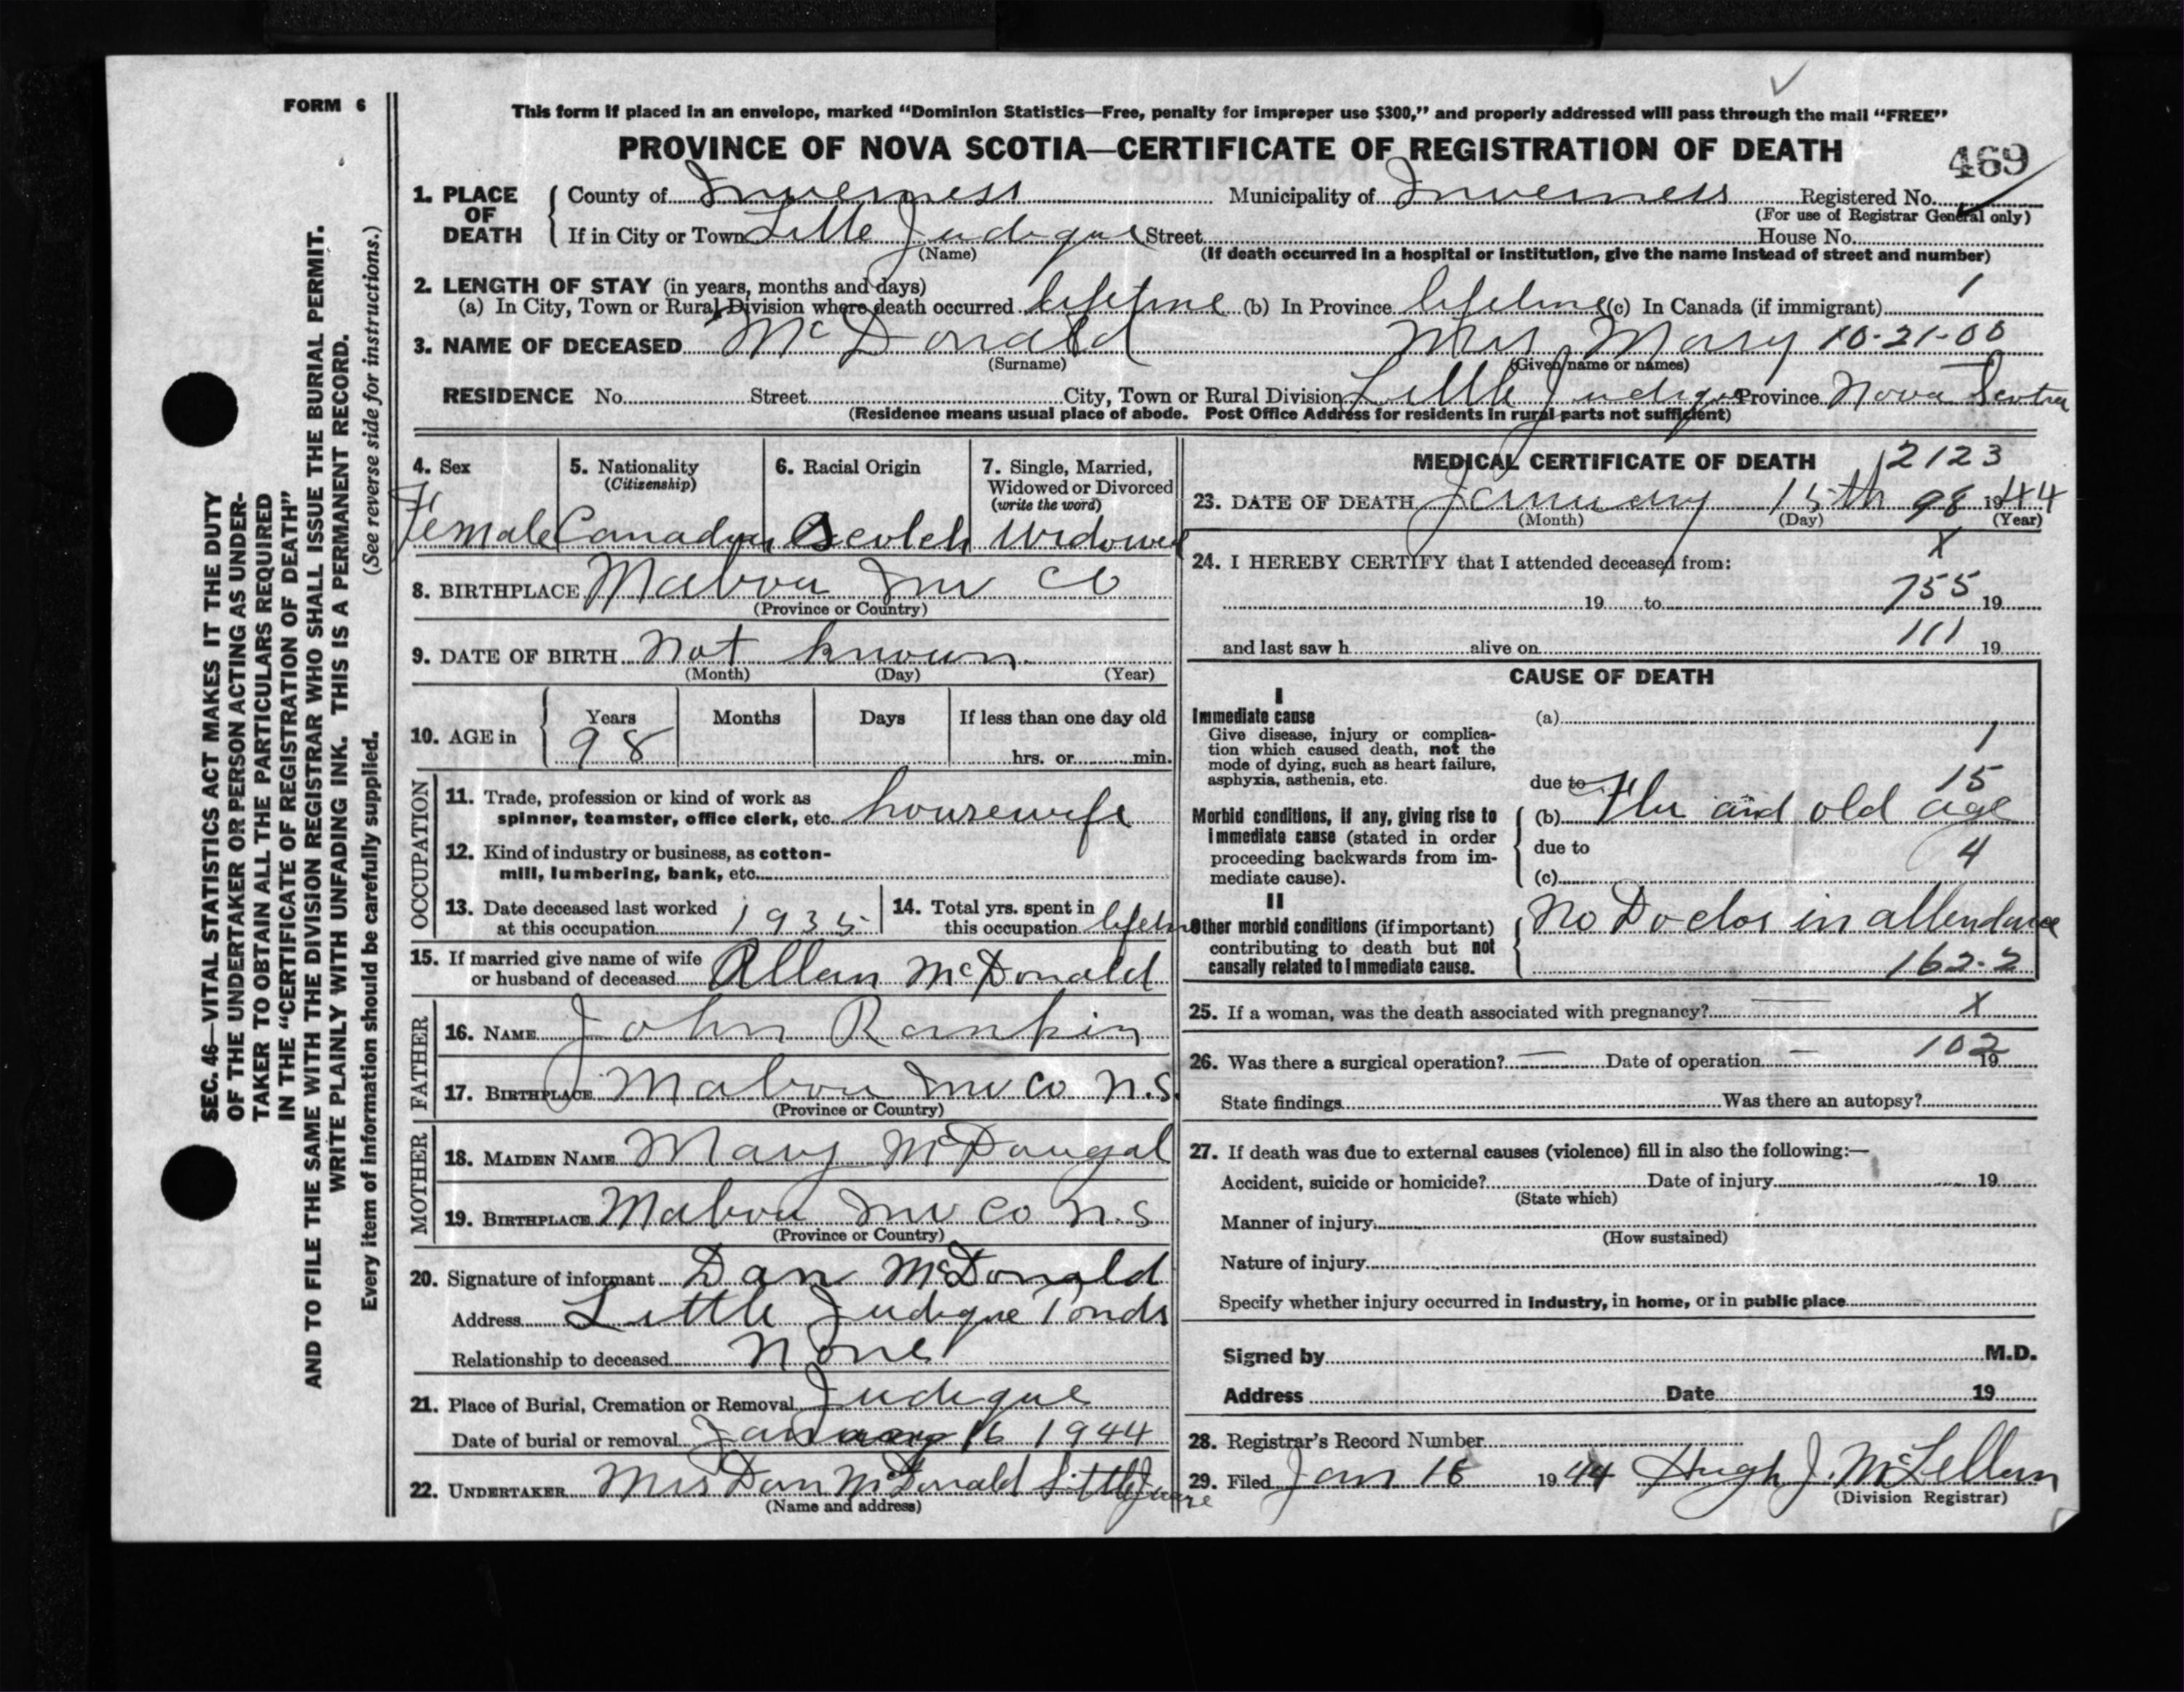 FORM 6
This form if placed in an envelope, marked "Dominion Statistics—Free, penalty for improper use $300," and properly addressed will pass through the mail "FREE"
PROVINCE OF NOVA SCOTIA—CERTIFICATE OF REGISTRATION OF DEATH
469
1. PLACE OF DEATH County of Inverness Municipality of Inverness Registered No.
(For use of Registrar General only)
If in City or Town Little Judique Street House No.
(Name) (If death occurred in a hospital or institution, give the name instead of street and number)
2. LENGTH OF STAY (in years, months and days) 1
(a) In City, Town or Rural Division where death occurred lifetime (b) In Province lifetime (c) In Canada (if immigrant)
3. NAME OF DECEASED McDonald Mrs Mary 10-21-00
(Surname) (Given name or names)
RESIDENCE No. Street City, Town or Rural Division Little Judique Province Nova Scotia
(Residence means usual place of abode. Post Office Address for residents in rural parts not sufficient)
4. Sex
Female
5. Nationality
(Citizenship)
Canadian
6. Racial Origin
Scotch
7. Single, Married,
Widowed or Divorced
(write the word)
Widowed
8. BIRTHPLACE Mabou Inv Co
(Province or Country)
9. DATE OF BIRTH not known
(Month) (Day) (Year)
10. AGE in Years Months Days If less than one day old
98 hrs. or min.
OCCUPATION
11. Trade, profession or kind of work as
spinner, teamster, office clerk, etc. housewife
12. Kind of industry or business, as cotton-
mill, lumbering, bank, etc.
13. Date deceased last worked
at this occupation 1935
14. Total yrs. spent in
this occupation
15. If married give name of wife
or husband of deceased Allan McDonald
FATHER
16. NAME John Rankin
17. BIRTHPLACE Mabou Inv Co N.S.
(Province or Country)
MOTHER
18. MAIDEN NAME Mary McDougal
19. BIRTHPLACE Mabou Inv Co N.S
(Province or Country)
20. Signature of informant Dan McDonald
Address Little Judique Ponds
Relationship to deceased None
21. Place of Burial, Cremation or Removal Judique
Date of burial or removal January 16 1944
22. UNDERTAKER Mrs Dan McDonald Little
(Name and address)
MEDICAL CERTIFICATE OF DEATH 2123
23. DATE OF DEATH January 15th 98 1944
(Month) (Day) (Year)
X
24. I HEREBY CERTIFY that I attended deceased from:
19 to 755 19
111
and last saw h alive on 19
CAUSE OF DEATH
I
Immediate cause
Give disease, injury or complica-
tion which caused death, not the
mode of dying, such as heart failure,
asphyxia, asthenia, etc.
(a)
1
due to 15
Morbid conditions, if any, giving rise to
immediate cause (stated in order
proceeding backwards from im-
mediate cause).
(b) Flu and old age
due to 4
(c)
II
Other morbid conditions (if important)
contributing to death but not
causally related to immediate cause.
No Doctor in attendance
162-2
25. If a woman, was the death associated with pregnancy? — X
26. Was there a surgical operation? — Date of operation — 102 19
State findings Was there an autopsy?
27. If death was due to external causes (violence) fill in also the following:—
Accident, suicide or homicide? Date of injury 19
(State which)
Manner of injury
(How sustained)
Nature of injury
Specify whether injury occurred in industry, in home, or in public place
Signed by M.D.
Address Date 19
28. Registrar's Record Number
29. Filed Jan 16 1944 Hugh J. McLellan
(Division Registrar)
SEC. 46—VITAL STATISTICS ACT MAKES IT THE DUTY
OF THE UNDERTAKER OR PERSON ACTING AS UNDER-
TAKER TO OBTAIN ALL THE PARTICULARS REQUIRED
IN THE "CERTIFICATE OF REGISTRATION OF DEATH"
AND TO FILE THE SAME WITH THE DIVISION REGISTRAR WHO SHALL ISSUE THE BURIAL PERMIT.
WRITE PLAINLY WITH UNFADING INK. THIS IS A PERMANENT RECORD.
Every item of information should be carefully supplied. (See reverse side for instructions.)